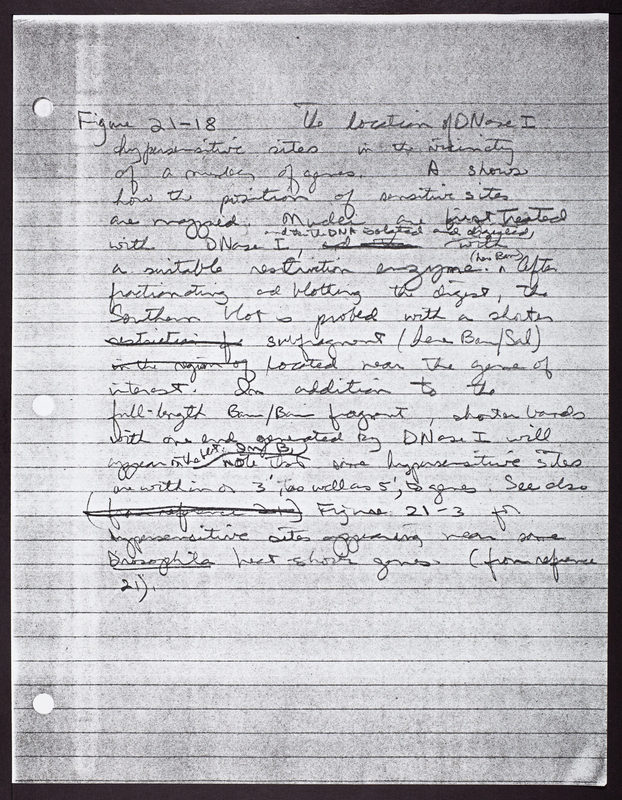 Figure 21-18 The location of DNase I
hypersensitive sites in the vicinity
of a number of genes. A shows
how the position of sensitive sites
are mapped. Nuclei are first treated
with DNase I, and the DNA isolated and digested with
a suitable restriction enzyme. (here Bam) After
fractionating and blotting the digest, the
Southern blot is probed with a shorter
restriction subfragment (here Bam/Sal)
in the region of located near the gene of
interest. In addition to the
full-length Bam/Bam fragment, shorter bands
with one end generated by DNase I will
appear on the blot. In B, note that some hypersensitive sites
are within or 3', as well as 5', to genes. See also
(from reference 21) Figure 21-3 for
hypersensitive sites appearing near some
Drosophila heat-shock genes. (from reference
21).